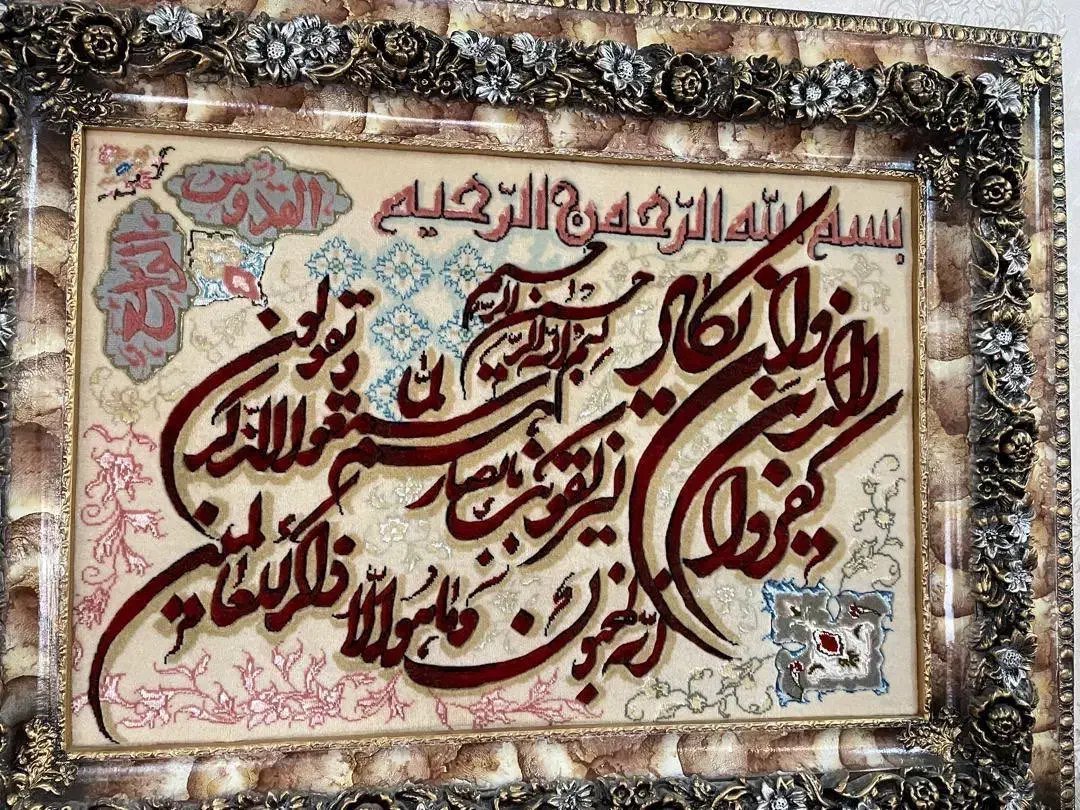 بسم الله الرحمن الرحیم
القدوس
بسم الله الرحمن الرحیم
وان یکاد الذین کفروا
لیزلقونک بابصارهم لما سمعوا الذکر
و یقولون انه لمجنون
و ما هو الا ذکر للعالمین